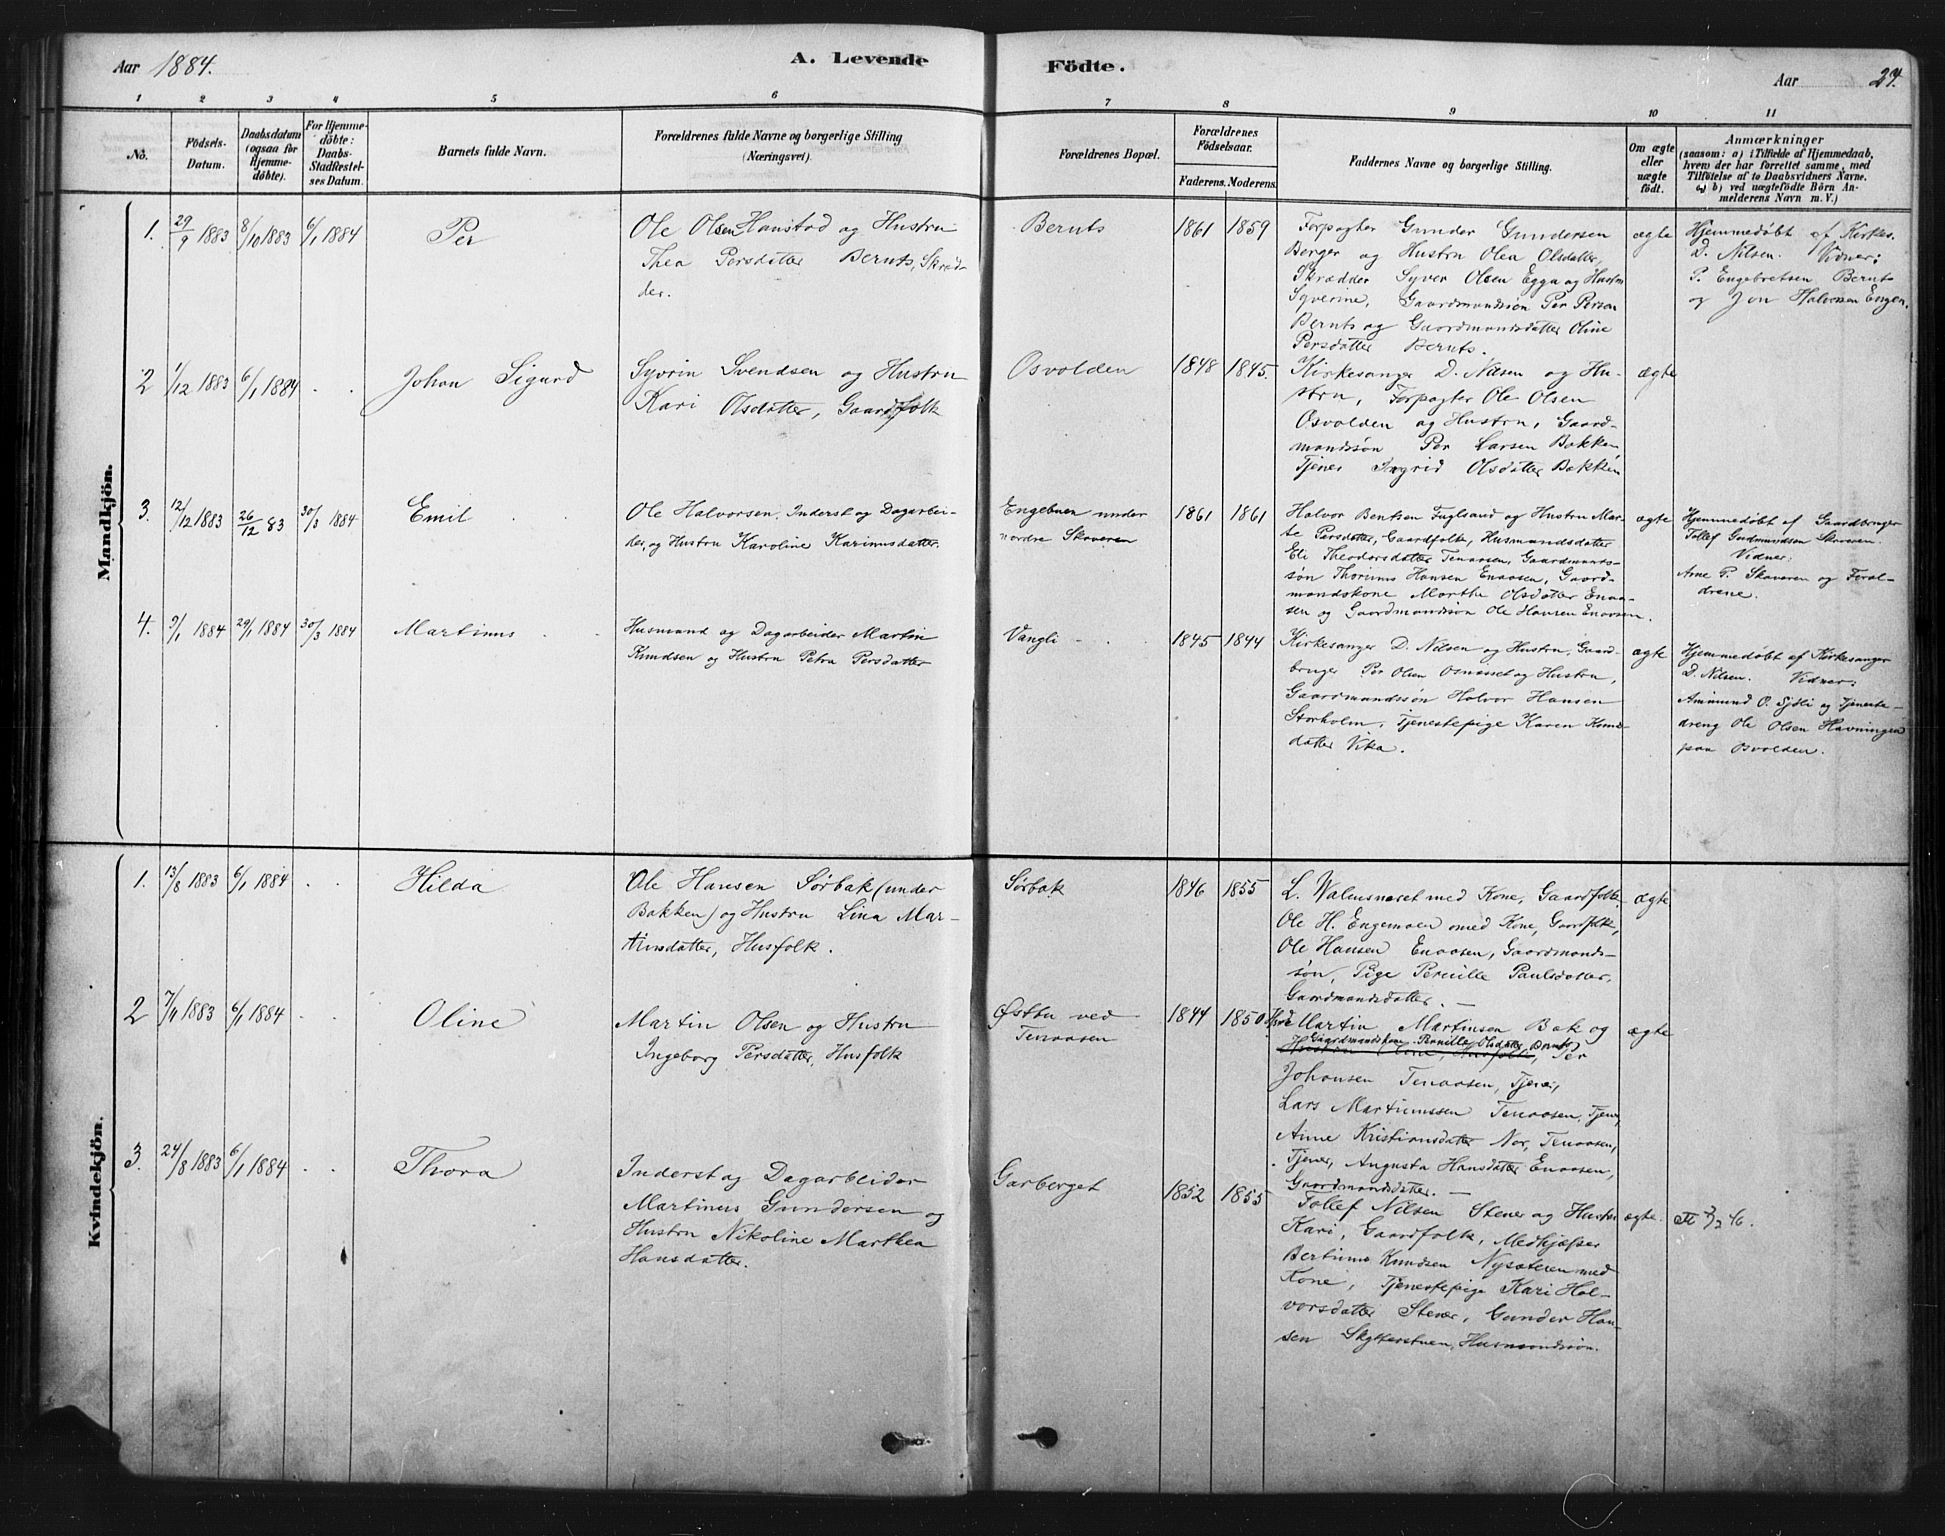 Aar 1884.
A. Levende
Födte.
Aar
27.
1 2 3 4 5 6 7 8 9 10 11
No.
Födsels-
Datum.
Daabsdatum
(ogsaa for
Hjemme-
döbte).
For Hjemme-
döbte:
Daabs-
Stadfæstel-
ses Datum.
Barnets fulde Navn.
Forældrenes fulde Navne og borgerlige Stilling
(Næringsvei).
Forældrenes Bopæl.
Forældrenes
Födselsaar.
Faderens. Moderens.
Faddernes Navne og borgerlige Stilling.
Om ægte
eller
uægte
födt.
Anmærkninger
(saasom: a) i Tilfælde af Hjemmedaab,
hvem der har forrettet samme, med
Tilföielse af to Daabsvidners Navne,
og b) ved uægtefödte Börn An-
melderens Navn m. V.)
Mandkjön.
1. 29/9 1883 8/10 1883 6/1 1884
Per
Ole Olsen Hanstad og Hustru
Thea Persdatter Bernts, Skræd-
der.
Bernts
1861 1859
Forpagter Gunder Gundersen
Berger og Hustru Olea Olsdatter,
Skrædder Syver Olsen Egga og Hustru
Syverine, Gaardmandssön Per Persen
Bernts og Gaardmandsdatter Oline
Persdatter Bernts.
ægte
Hjemmedøbt af Kirkes.
D. Nilsen. Vidner:
P. Engebretsen Bernts
og Jon Halvorsen Engen.
2 1/12 1883 6/1 1884 . .
Johan Sigurd
Syvrin Svendsen og Hustru
Kari Olsdatter, Gaardfolk
Osvolden
1848 1845.
Kirkesanger D. Nilsen og Hu-
stru, Forpagter Ole Olsen
Osvolden og Hustru, Gaard-
mandssön Per Larsen Bakken,
Tjener Ingrid Olsdatter Bakken
ægte
3. 12/12 1883 26/12 83 30/3 1884
Emil
Ole Halvorsen, Inderst og Dagarbei-
der, og Hustru Karoline Karinusdatter.
Engebuen under
nordre Skaveren
1861 1861
Halvor Bentsen Fuglsand og Hustru Mar-
te Persdatter, Gaardfolk, Husmandsdatter
Eli Theodorsdatter Tenaasen, Gaardmands-
søn Thorinus Hansen Enaasen, Gaard-
mandskone Marthe Olsdatter Enaa-
sen og Gaardmandssøn Ole Hansen Enaasen.
ægte
Hjemmedøbt af Gaardbruger
Tollef Gudmundsen Skaveren.
Vidner:
Arne P. Skaveren og Foræl-
drene.
4. 9/1 1884 29/1 1884 30/3 1884
Martinus
Husmand og Dagarbeider Martin
Knudsen og Hustru Petra Persdatter
Vangli
1845 1844
Kirkesanger D. Nilsen og Hustru, Gaard-
bruger Per Olsen Osnesset og Hustru,
Gaardmandssøn Halvor Hansen
Storholm, Tjenestepige Karen
datter Vika.
ægte
Hjemmedøbt af Kirkesanger
D. Nilsen. Vidner:
Ammund O. Sjøli og Tjeneste-
dreng Ole Olsen Havningen
paa Osvolden.
Kvindekjön.
1. 13/8 1883 6/1 1884 . .
Hilda
Ole Hansen Sørbak (under
Bakken) og Hustru Lina Mar-
tinsdatter, Husfolk.
Sørbak
1846 1855
L. Walmsnæset med Kone, Gaardfolk.
Ole H. Engemoen med Kone, Gaardfolk,
Ole Hansen Enaasen, Gaardmands-
søn, Pige Pernille Paulsdatter,
Gaardmandsdatter. —
ægte
2 7/11 1883 6/1 1884 . .
Oline
Martin Olsen og Hustru
Ingeborg Persdatter, Husfolk
Østtu ved
Tenaasen
1844 1850
Martin Martinsen Bak og
Gaardmandskone Pernille Olsdatter Bernts
Per
Johansen Tenaasen, Tjener,
Lars Martinussen Tenaasen, Tjener,
Anne Kristiansdatter Nor, Tenaasen,
Tjener, Augusta Hansdatter Enaasen,
Gaardmandsdatter. —
ægte
3. 24/8 1883 6/1 1884 . .
Thora
Inderst og Dagarbeider
Martinus Gundersen og
Hustru Nikoline Marthea
Hansdatter.
Garberget
1852 1855
Tollef Nilsen Stener og Hustru
Kari, Gaardfolk, Medhjælper
Bertinus Knudsen Nysæteren med
Kone, Tjenestepige Kari Hal-
vorsdatter Stener, Gunder Han-
sen Skytterstuen, Husmandssøn.
ægte.